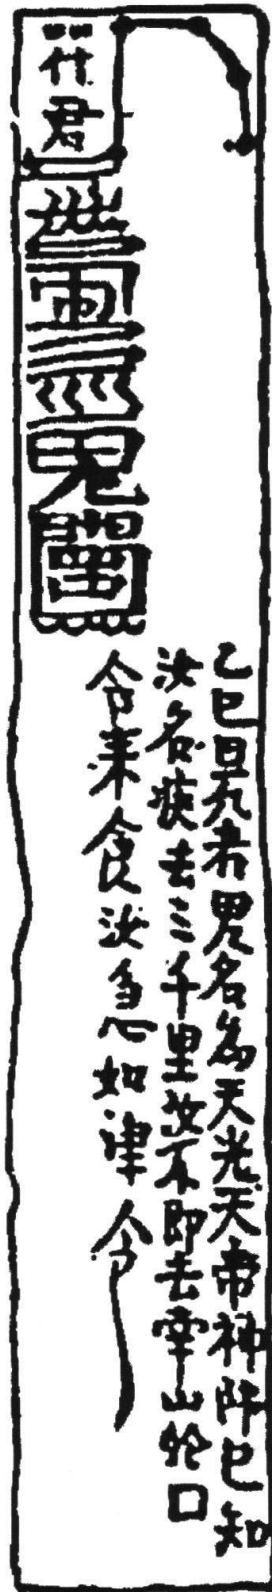 符君
乙巳日死者鬼名為天光天帝神師已知
汝名疾去三千里汝不即去南山給□
令來食汝急如律令